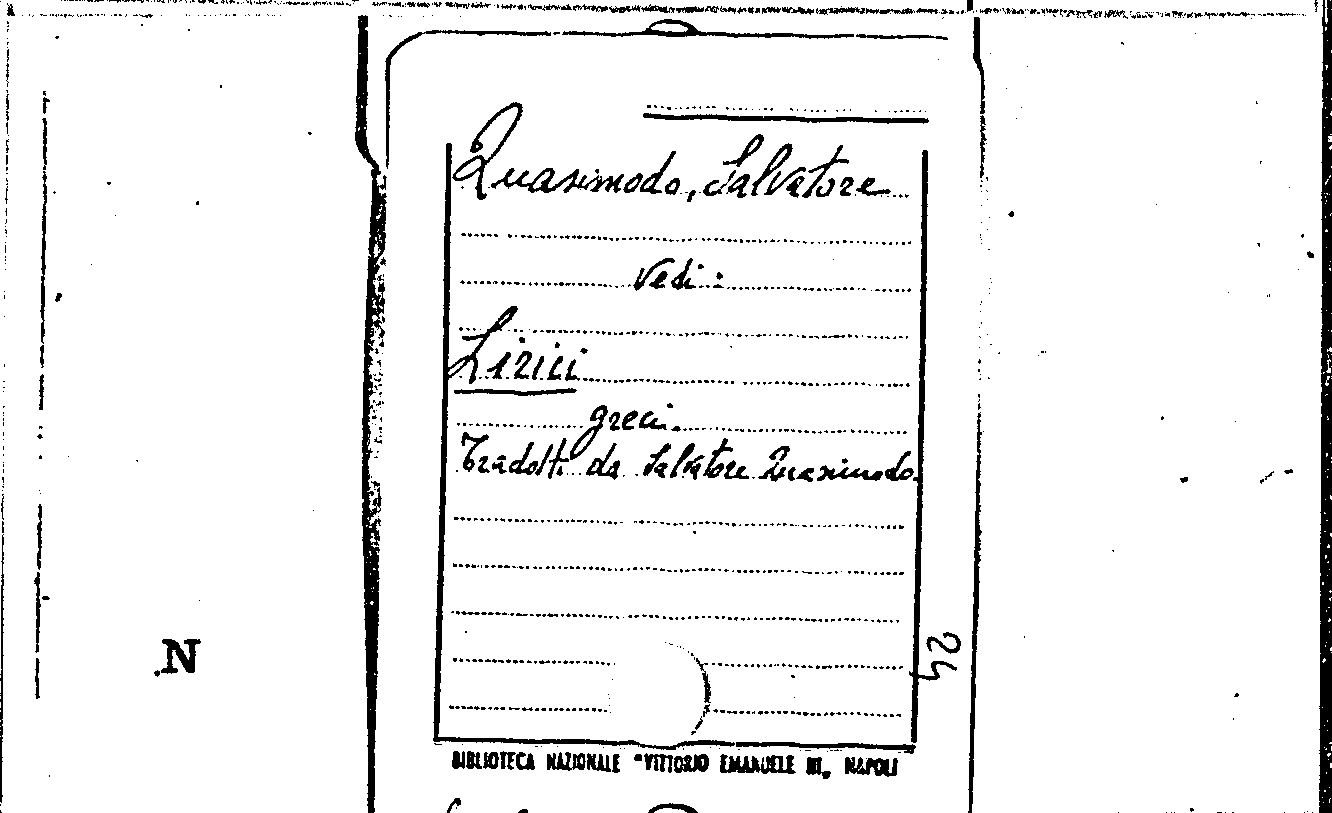 Quasimodo, Salvatore
Vedi:
Lirici
greci.
Tradotti da Salvatore Quasimodo.
24
N
BIBLIOTECA NAZIONALE "VITTORIO EMANUELE III„ NAPOLI